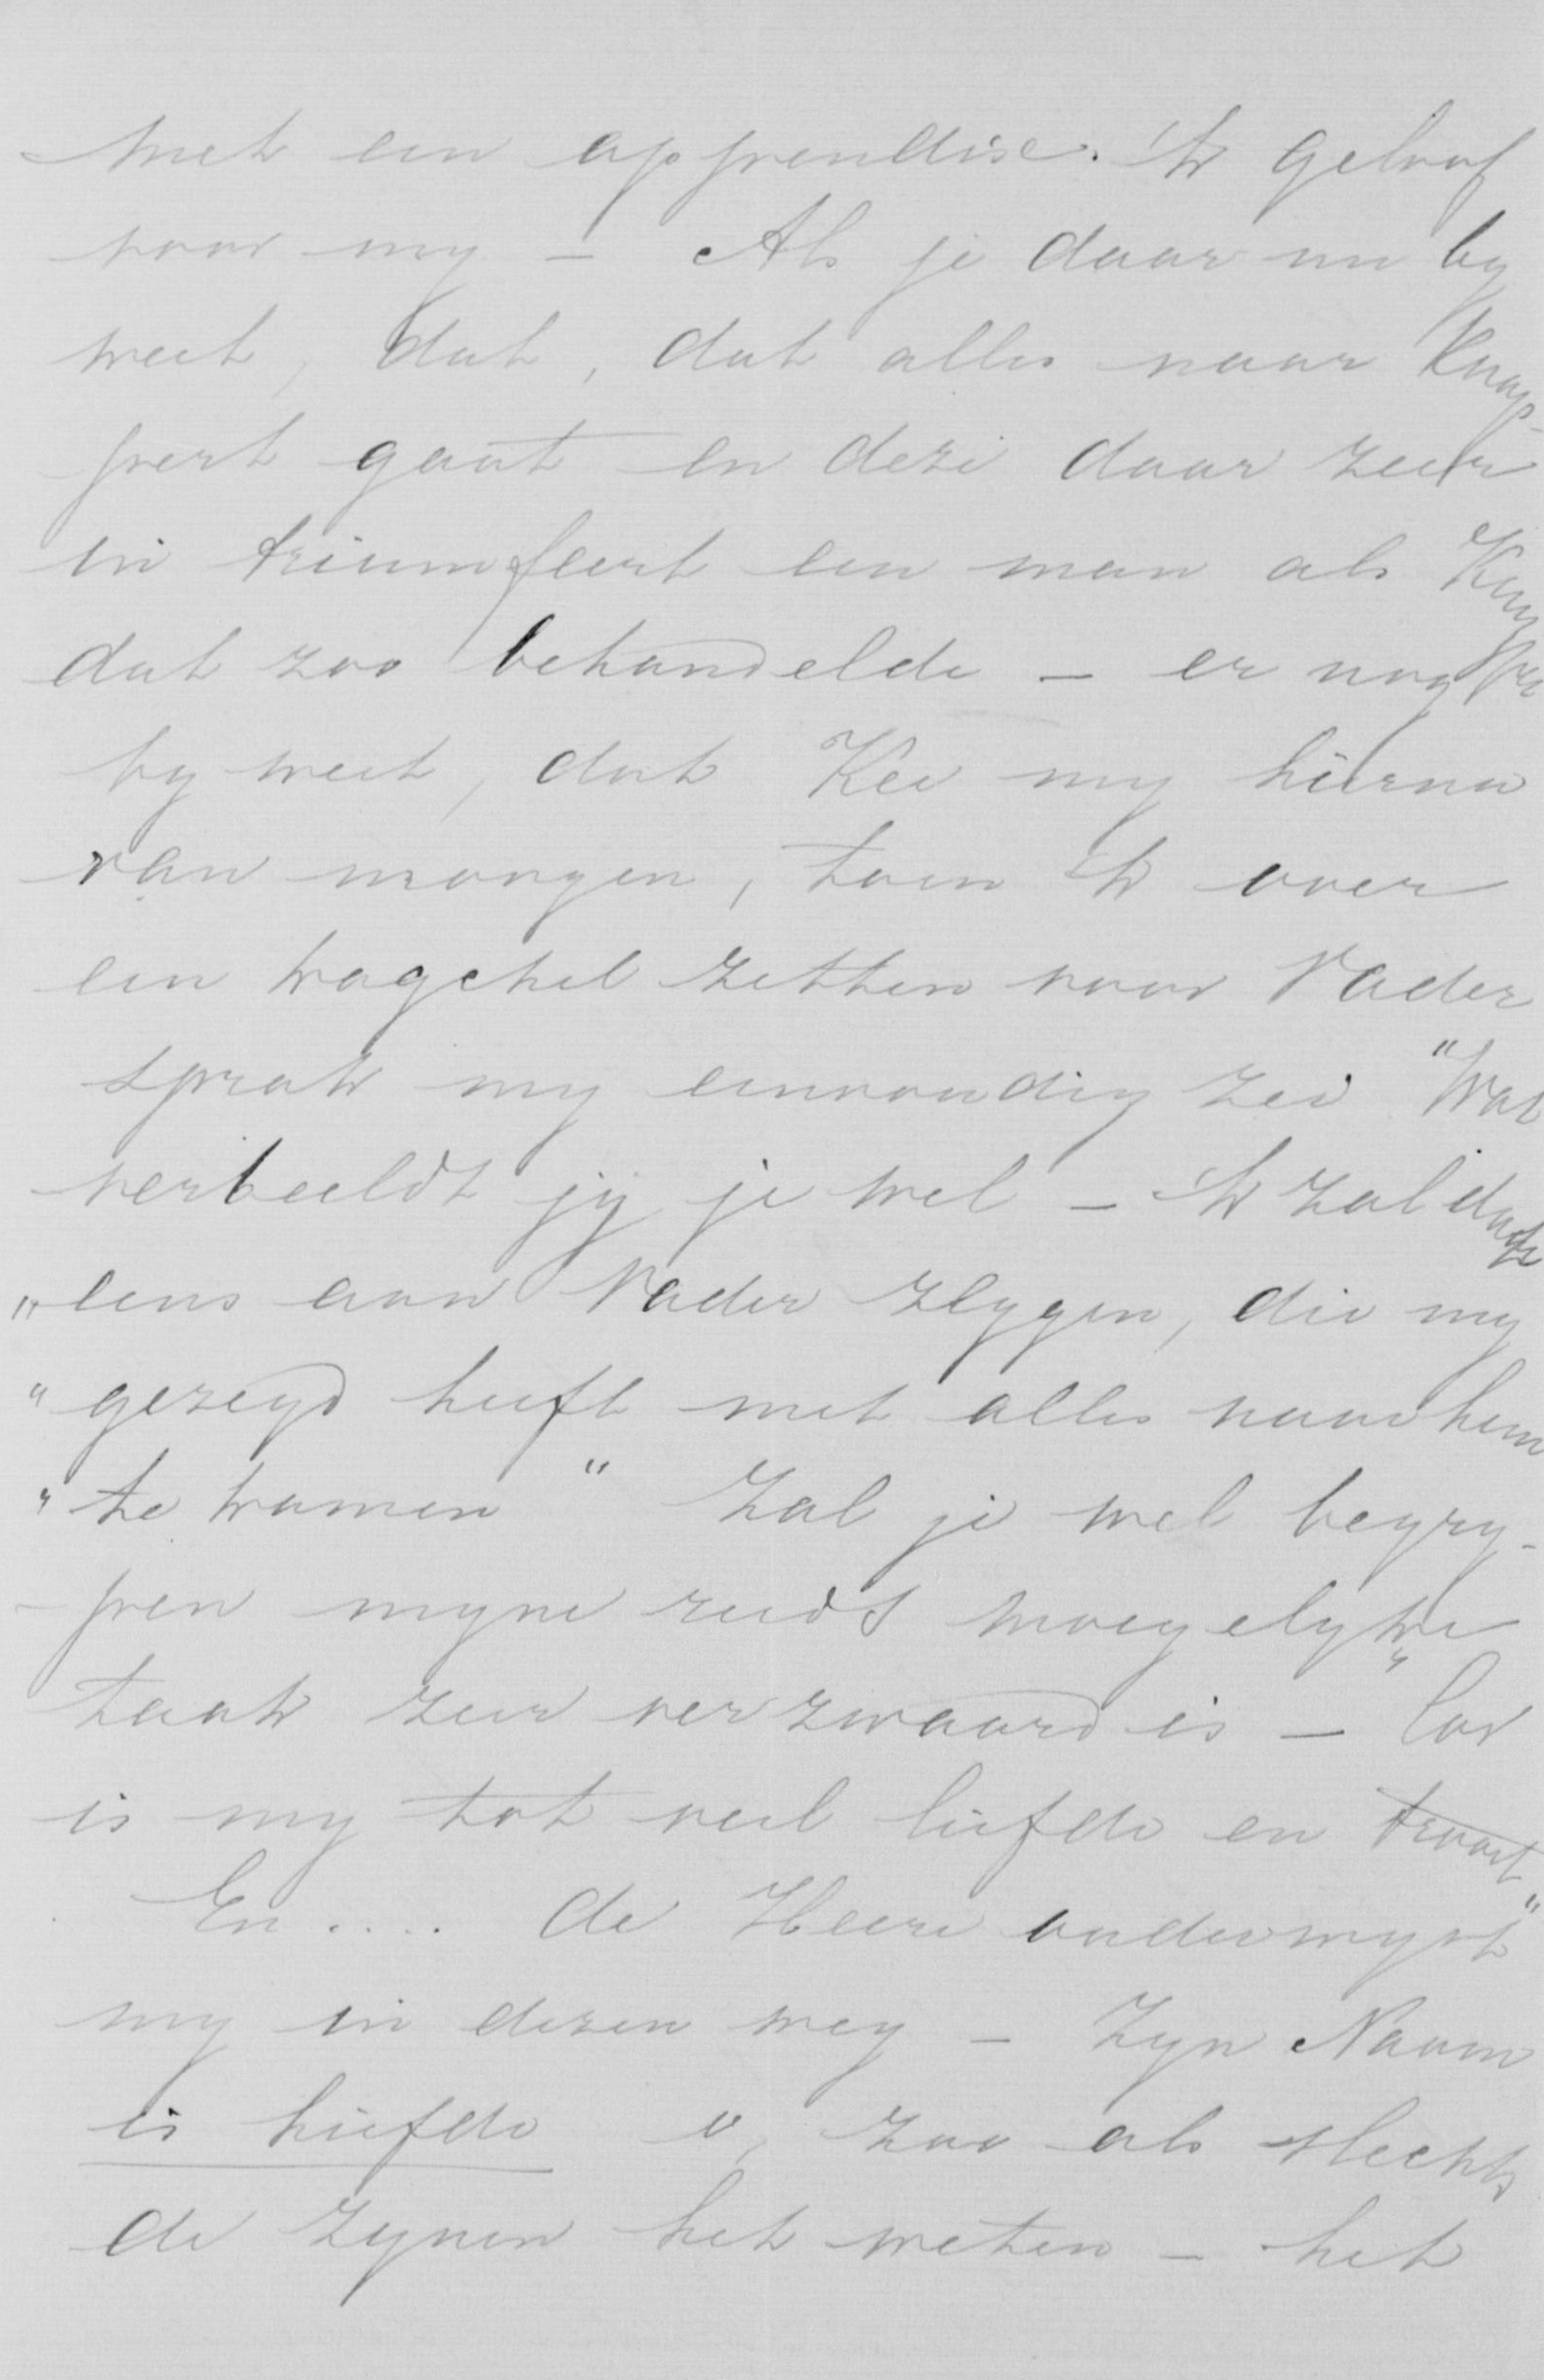 met een apprendise. Ik geloof
voor my – Als je daar nu by
weet, dat, dat alles naar Knap-
pert gaat en deze daar zeer
in triumfeert een man als
dat zoo behandelde – er nog
by weet, dat Kee my hierna
van morgen, toen ik over
een kagchel zetten voor Vader
sprak my eenvoudig zei "Wat
verbeeldt jy je wel – ik zal
"eens aan Vader zeggen, die my
"gezegd heeft met alles naar hem
"te komen" Zal je wel begry-
pen myne reeds moeyelyke
taak zeer verzwaard is – "Cor
is my tot veel liefde en troost"
En .... de Heere onderwyst
my in dezen weg – Zyn Naam
is liefde o, zoo als slechts
de zynen het weten – het